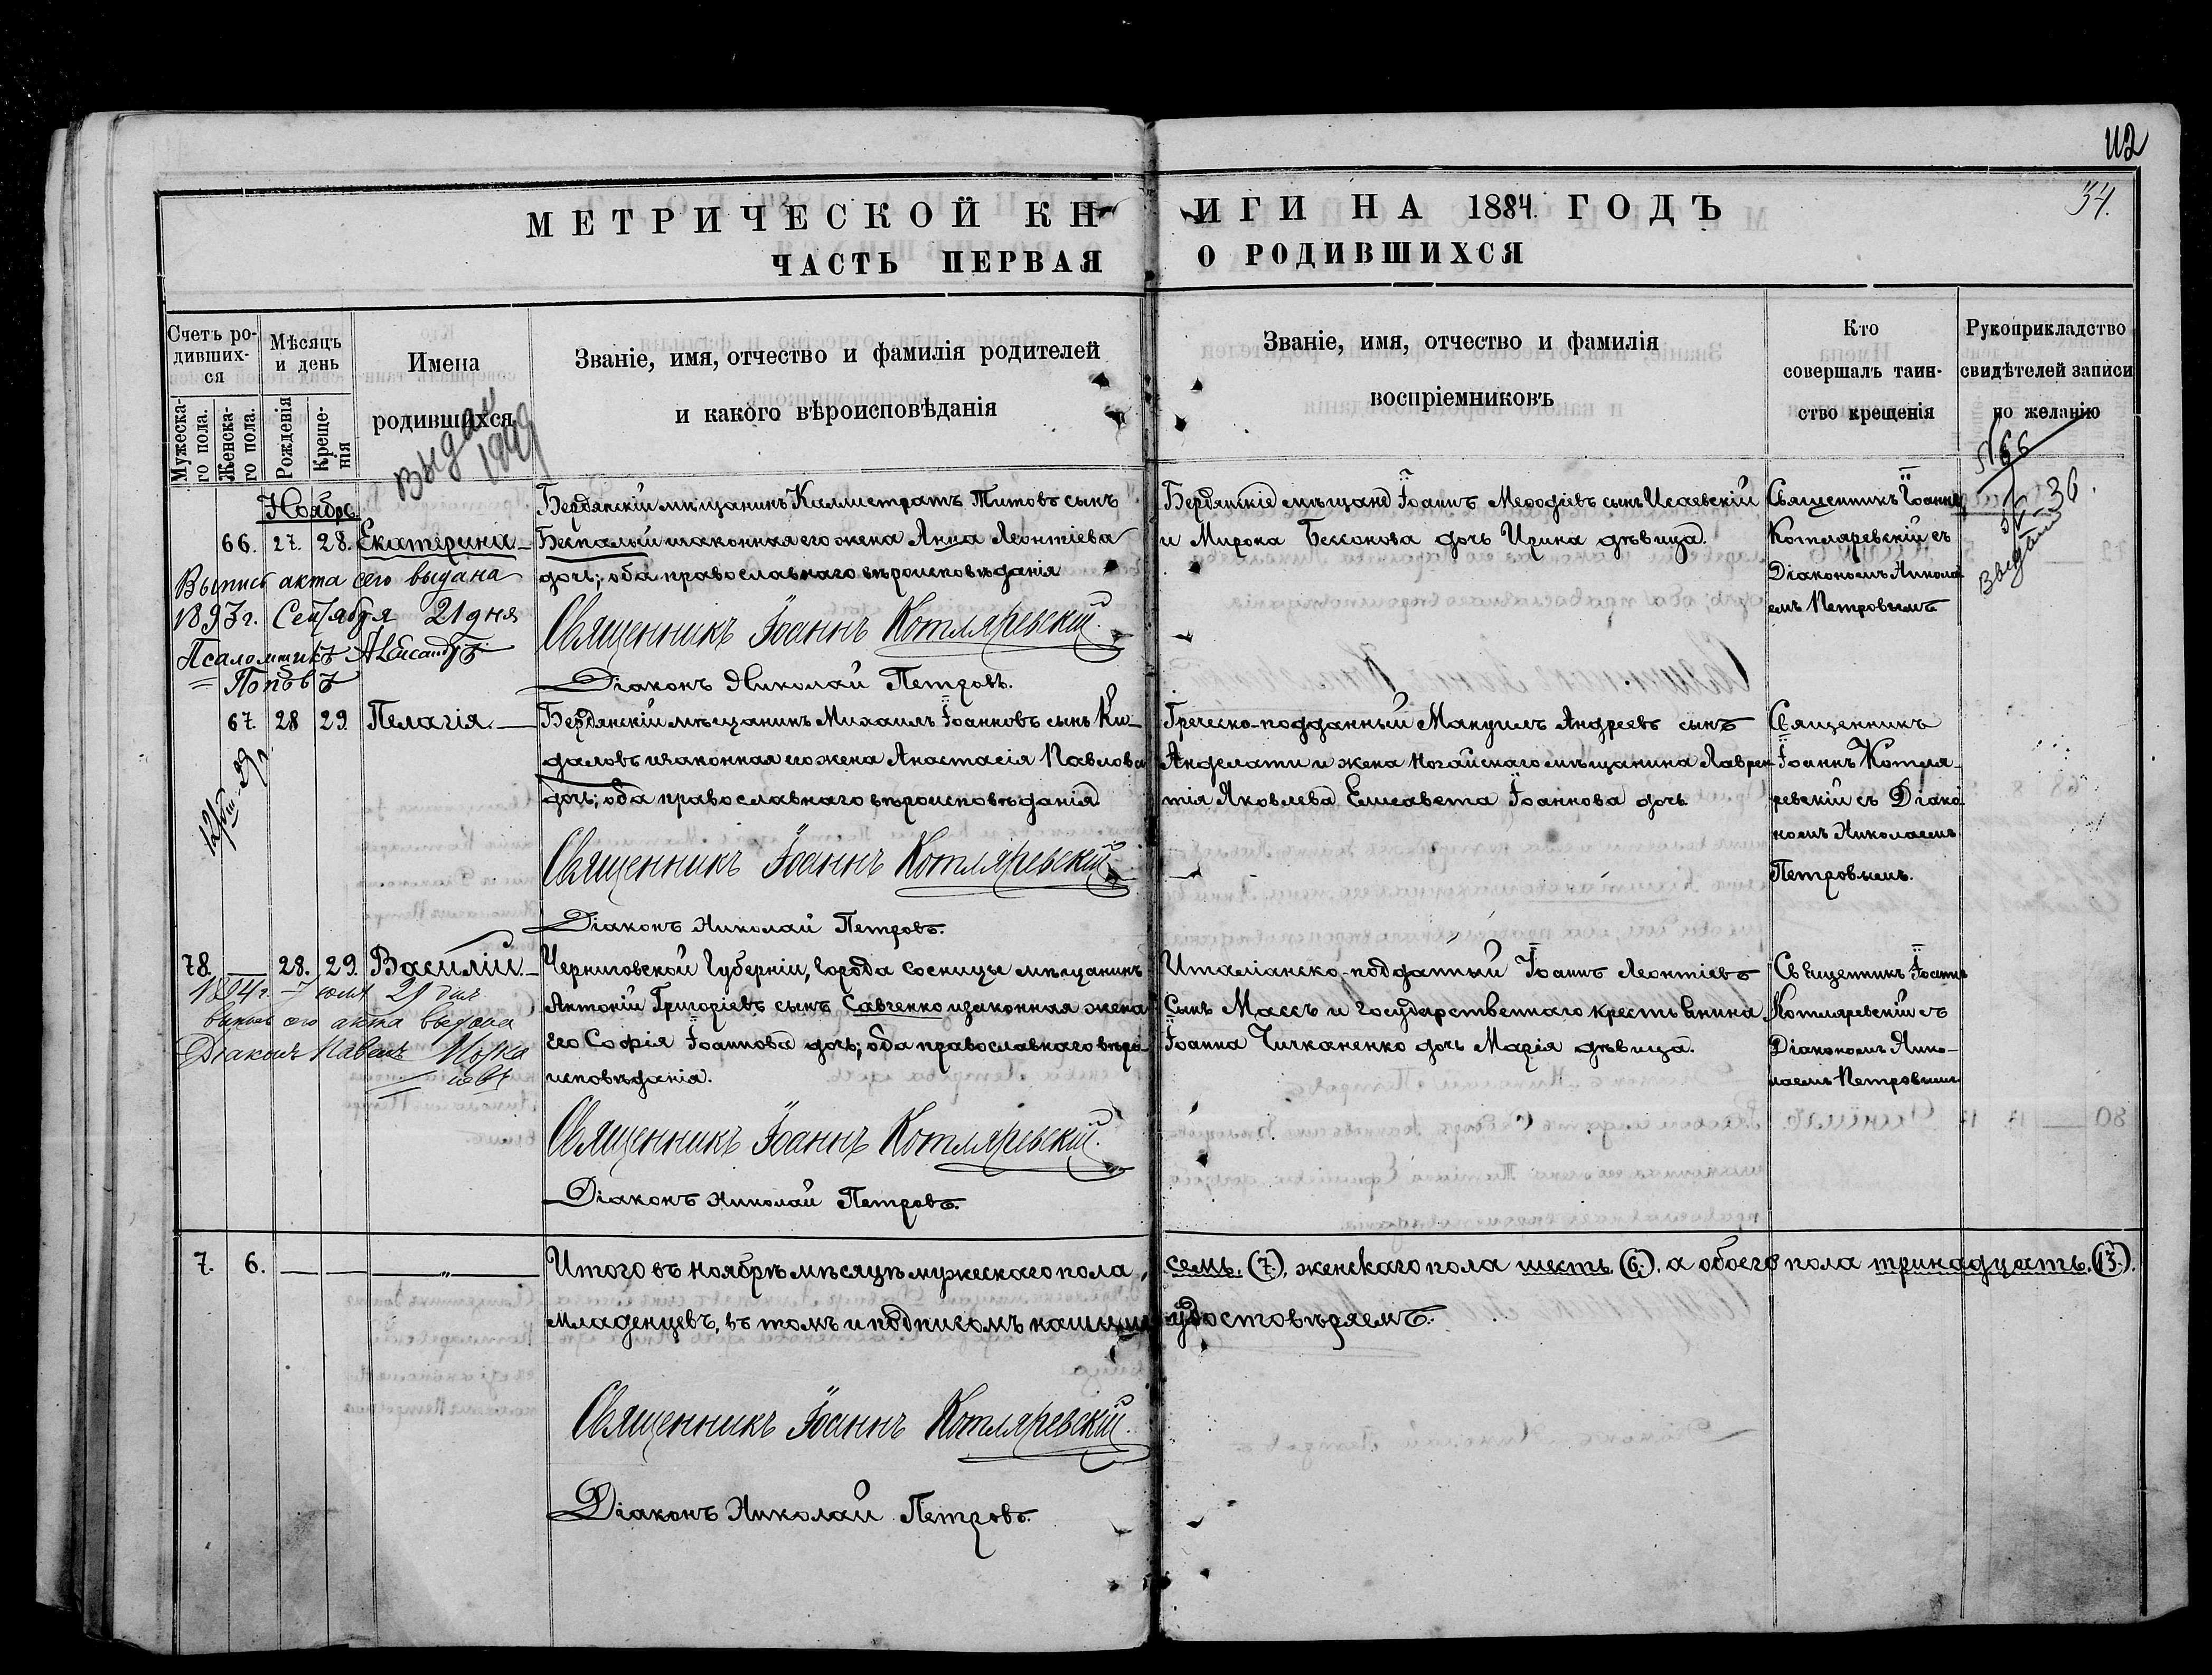 112
34.
МЕТРИЧЕСКОЙ КНИГИ НА 1884. ГОДЪ
ЧАСТЬ ПЕРВАЯ О РОДИВШИХСЯ
Счетъ ро-
дивших-
ся
Мужеска-
го пола.
Женска-
го пола.
Мѣсяцъ
и день
Рожденія
Креще-
нія
Имена
родившихся
Званіе, имя, отчество и фамилія родителей
и какого вѣроисповѣданія
Званіе, имя, отчество и фамилія
воспріемниковъ
Кто
совершалъ таин-
ство крещенія
Рукоприкладство
свидѣтелей записи
по желанію
Ноябрь
66. 27. 28. Екатерина
Бердянскій мѣщанинъ Каллистратъ Титовъ сынъ
Беспалый и законная его жена Анна Леонтіева
дочь; оба православнаго вѣроисповѣданія
Священникъ Іоаннъ Котляревскій.
Діаконъ Николай Петровъ.
Бердянскіе мѣщане Іоаннъ Меѳодіевъ сынъ Исаевскій
и Мирона Бессонова дочь Ирина дѣвица.
Священникъ Іоаннъ
Котляревскій съ
Діакономъ Никола
емъ Петровымъ
36.
Выпись акта сего выдана
1893г. Сентября 21 дня
Псаломщикъ Александръ
Поповъ
67. 28 29. Пелагія.
Бердянскій мѣщанинъ Михаилъ Іоанновъ сынъ Ки-
даловъ и законная его жена Анастасія Павлова
дочь; оба православнаго вѣроисповѣданія
Священникъ Іоаннъ Котляревскій
Діаконъ Николай Петровъ.
Греческо-подданный Мануилъ Андреевъ сынъ
Анделати и жена Ногайскаго мѣщанина Лаврен-
тія Яковлева Елисавета Іоаннова дочь
Священникъ
Іоаннъ Котля-
ревскій съ Діако
номъ Николаемъ
Петровымъ.
78. — 28. 29. Василій
Черниговской Губерніи, города Сосницы мѣщанинъ
Антоній Григоріевъ сынъ Савченко и законная жена
его Софія Іоаннова дочь; оба православнаго вѣро-
исповѣданія.
Священникъ Іоаннъ Котляревскій.
Діаконъ Николай Петровъ.
Италіанско-подданный Іоаннъ Леонтіевъ
сынъ Массъ и Государственнаго крестьянина
Іоанна Чичканенко дочь Марія дѣвица.
Священникъ Іоаннъ
Котляревскій съ
Діакономъ Нико-
лаемъ Петровымъ
29 дня
выпись сего акта выдана
Діаконъ Павелъ
7. 6. — — — „ —
Итого въ ноябрѣ мѣсяцѣ мужескаго пола, семь. (7.), женскаго пола шесть (6.). а обоего пола тринадцать. (13.).
младенцевъ, въ томъ и подписомъ нашимъ удостовѣряемъ.
Священникъ Іоаннъ Котляревскій.
Діаконъ Николай Петровъ.